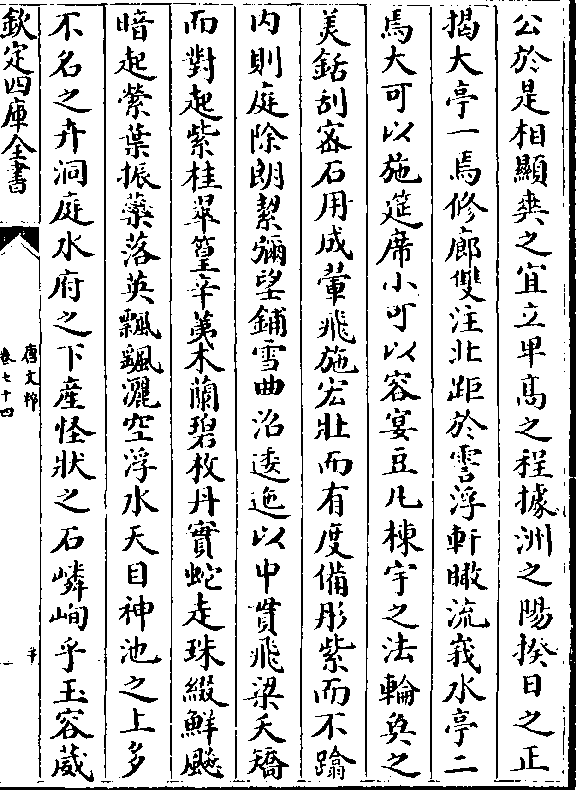 公於是相顯爽之宜立卑高之程據洲之陽揆日之正
揭大亭一焉修廊雙注北距於霅浮軒瞰流峩水亭二
焉大可以施筵席小可以容宴豆凡棟宇之法輪奐之
美銛刮密石用成翬飛施宏壯而有度備彤紫而不踰
内則庭除朗㓗彌望鋪雪曲沼逶迤以中貫飛梁夭矯
而對起紫桂翠篁辛夷木蘭碧枚丹實蛇走珠綴鮮飈
暗起縈葉振藥落英飄颻灑空浮水天目神池之上多
不名之卉洞庭水府之下產怪狀之石嶙峋乎玉容葳
欽定四庫全書
唐文粹
卷七十四